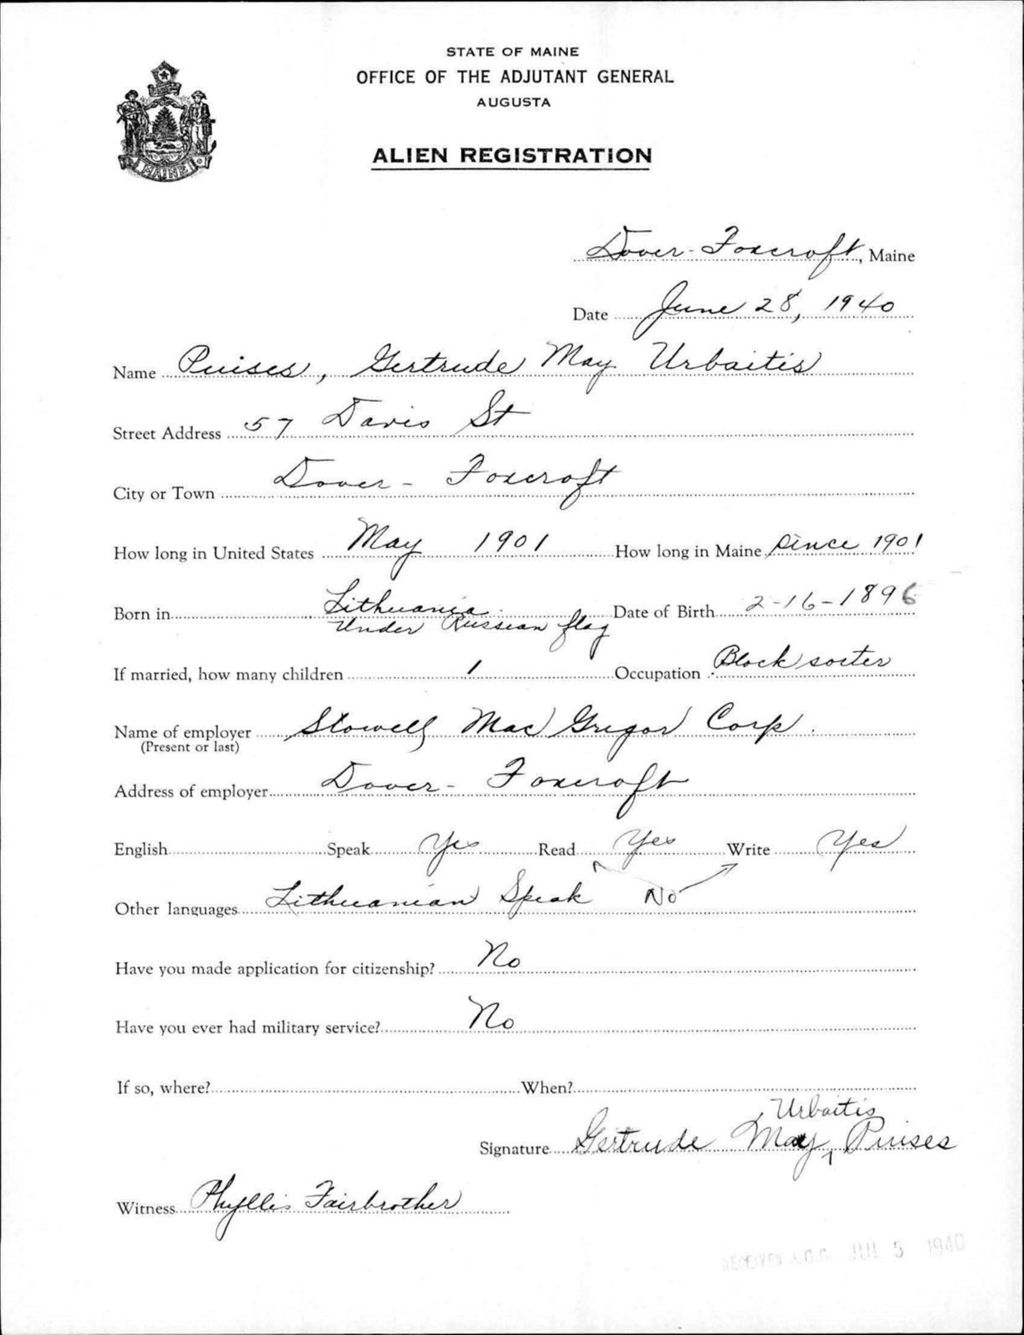 STATE OF MAINE
OFFICE OF THE ADJUTANT GENERAL
AUGUSTA
MAINE
ALIEN REGISTRATION
Dover-Foxcroft, Maine
Date June 28, 1940
Name Puises, Gertrude May Urbaitis
Street Address 57 Davis St
City or Town Dover-Foxcroft
How long in United States May 1901 How long in Maine Since 1901
Born in Lithuania Date of Birth 2-16-1896
Under Russian flag
If married, how many children 1 Occupation Block sorter
Name of employer Stowell Mac Gregor Corp.
(Present or last)
Address of employer Dover-Foxcroft
English Speak Yes Read Yes Write Yes
Other languages Lithuanian Speak No
Have you made application for citizenship? No
Have you ever had military service? No
If so, where? When?
Urbaitis
Signature Gertrude May Puises
Witness Phyllis Fairbrother
RECEIVED A.G.O. JUL 5 1940